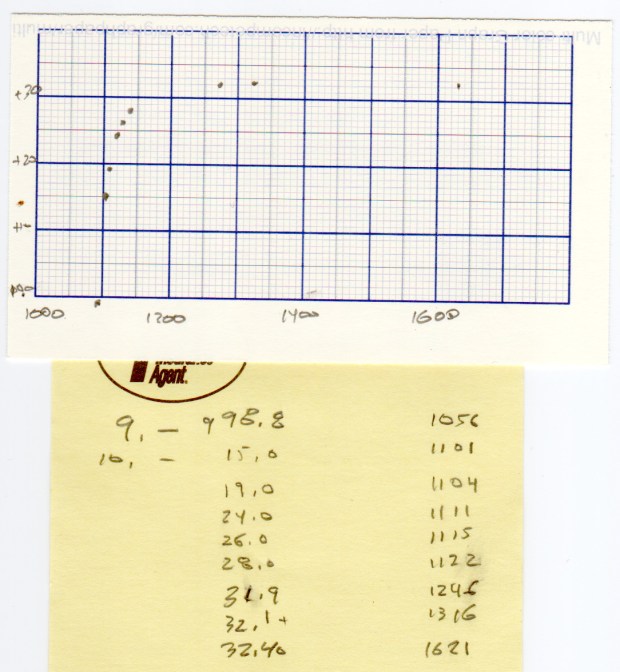 +30
+20
+10
1000 1200 1400 1600
Agent.
9. — 998.8 1056
10. — 15.0 1101
19.0 1104
24.0 1111
26.0 1115
28.0 1122
31.9 1246
32.1+ 1316
32.40 1621